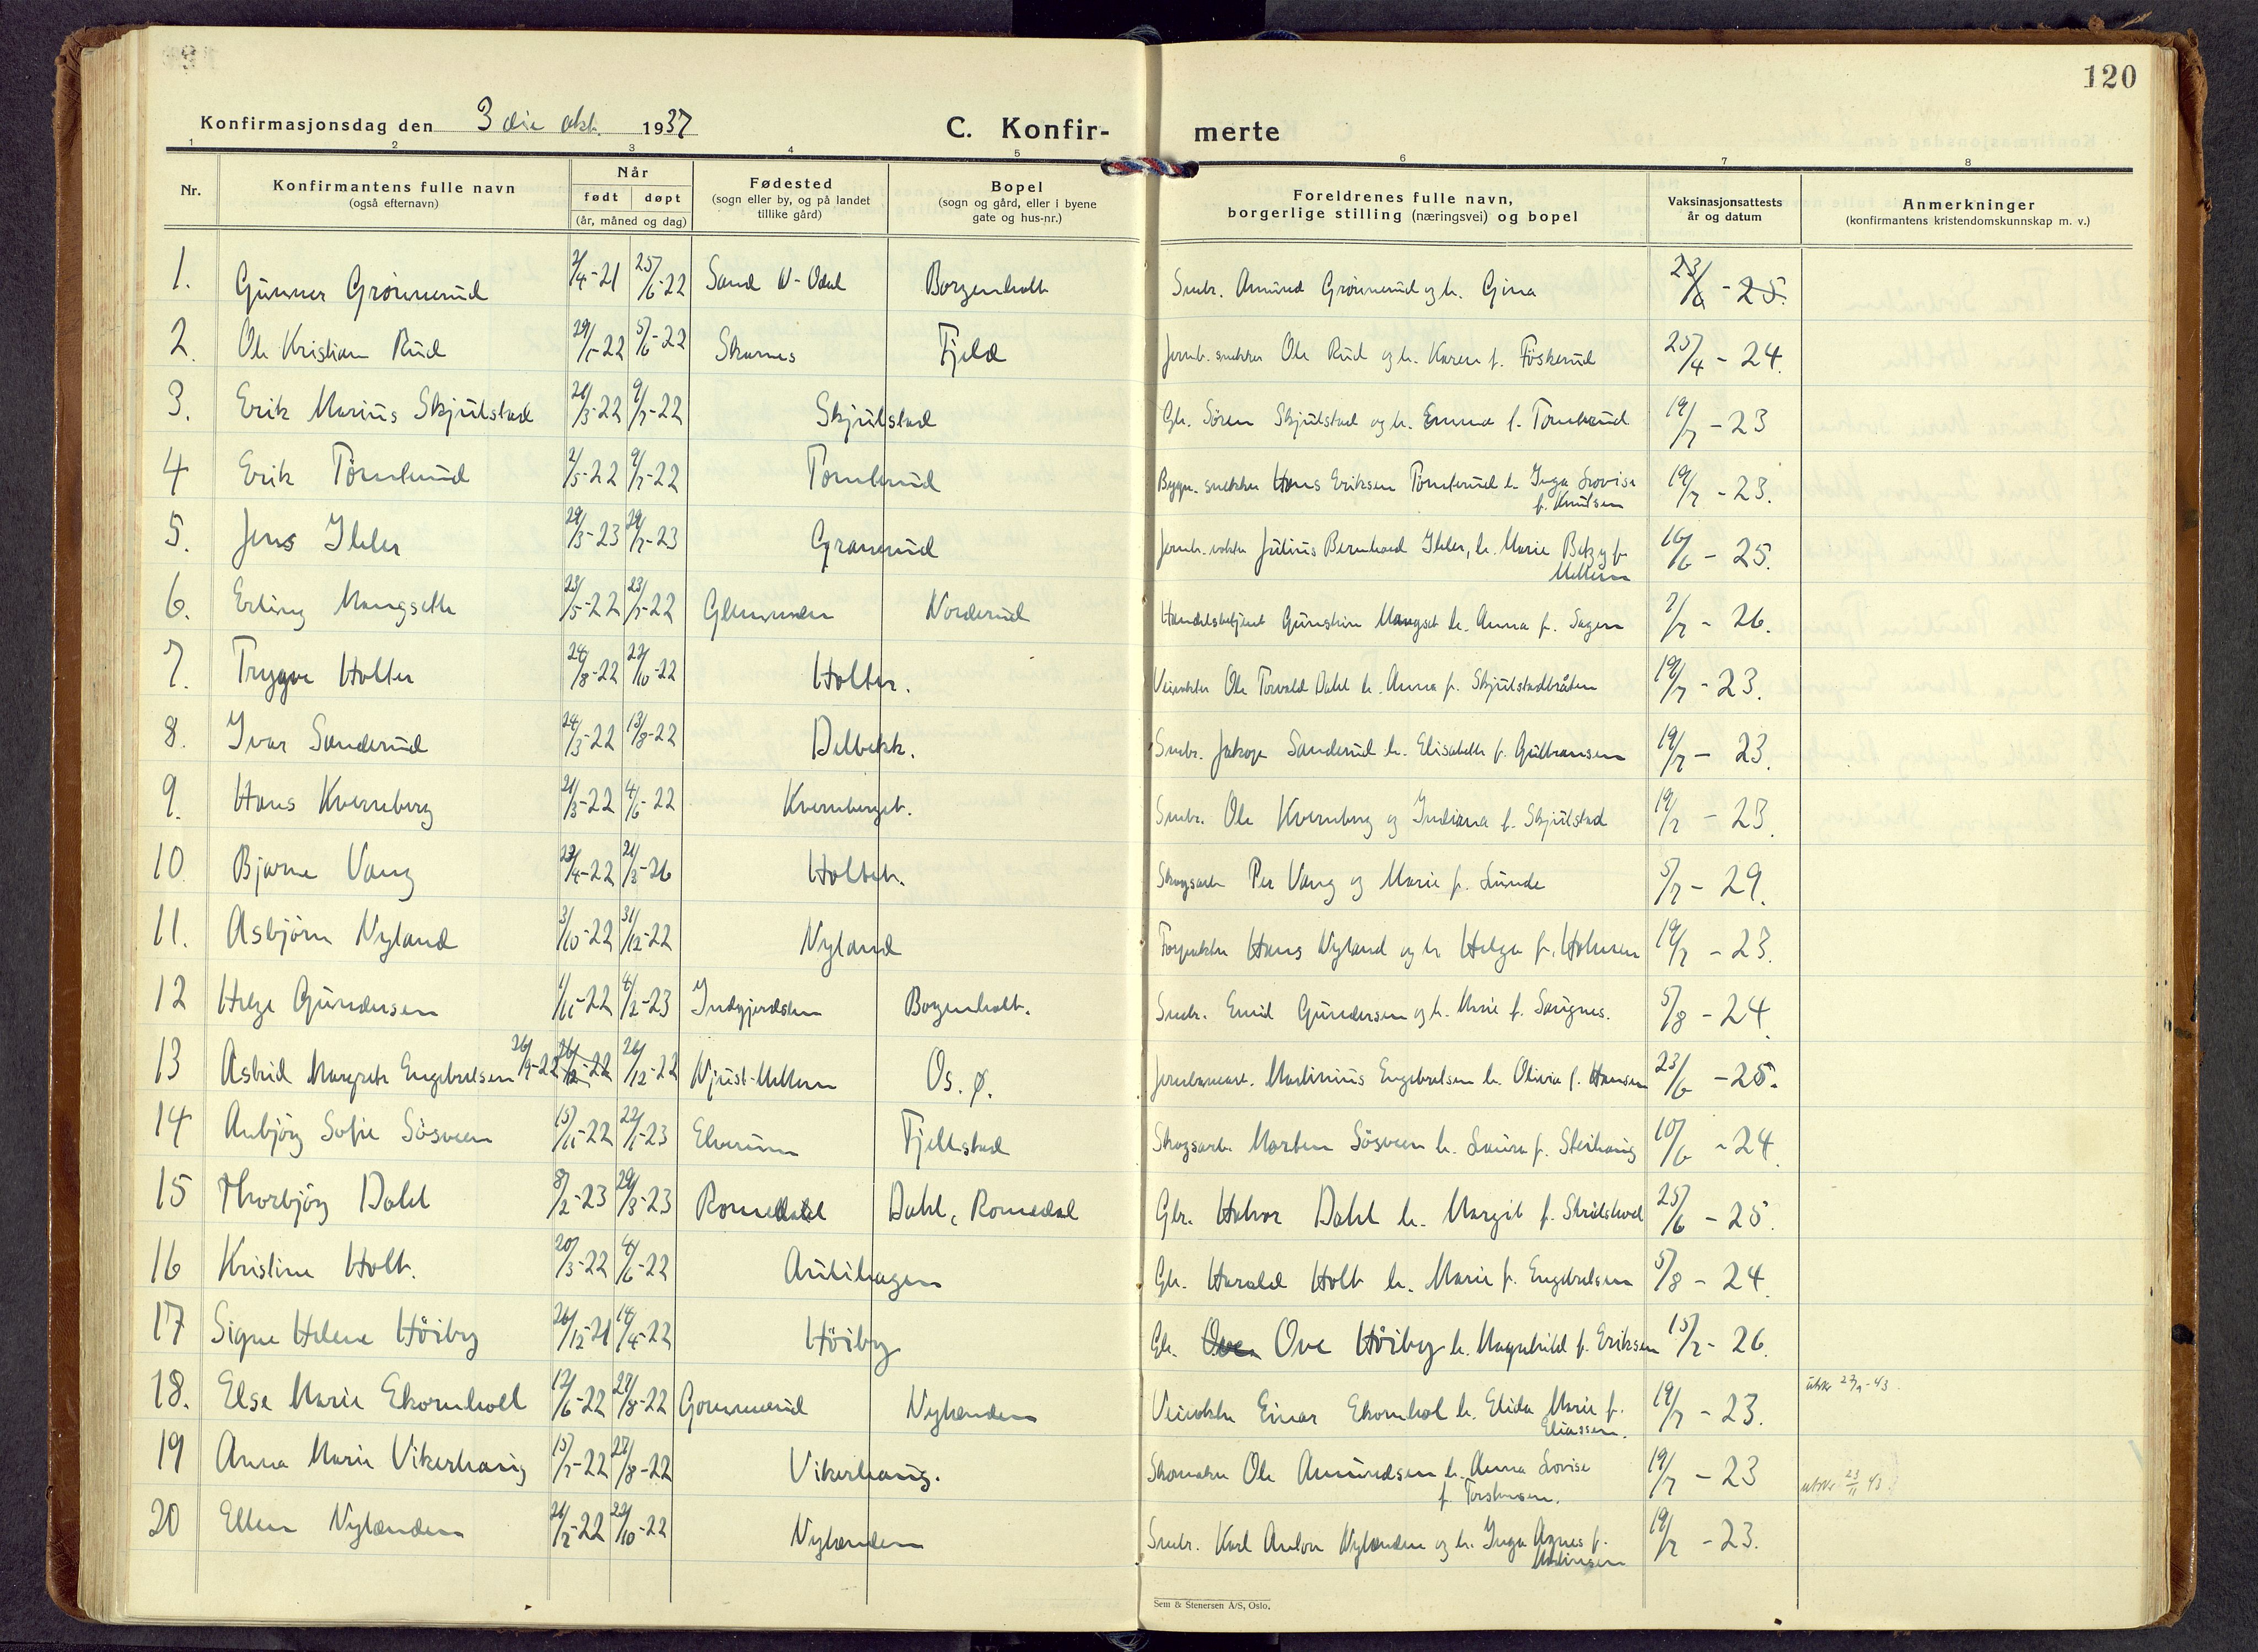 120
Konfirmasjonsdag den 3die okt. 1937
C. Konfir-merte
1 2 3 4 5 6 7 8
Nr. Konfirmantens fulle navn (også efternavn) Når født døpt (år, måned og dag) Fødested (sogn eller by, og på landet tillike gård) Bopel (sogn og gård, eller i byene gate og hus-nr.) Foreldrenes fulle navn, borgerlige stilling (næringsvei) og bopel Vaksinasjonsattests år og datum Anmerkninger (konfirmantens kristendomskunnskap m. v.)
1. Gunner Grønnerud 2/4-21 25/6-22 Sand N-Odal Borgenholt Smbr. Amund Grønnerud og h. Gina 23/6 - 25.
2. Ole Kristian Rud 29/1-22 5/6-22 Skarnes Fjeld Jernb. snekker Ole Rud og h. Karen f. Föskerud 25/4 - 24.
3. Erik Marius Skjulstad 21/3-22 9/7-22 Skjulstad Gbr. Sören Skjulstad og h. Emma f. Tomterud 19/7 - 23
4 Erik Tomterud 2/5-22 9/7-22 Tomterud Bygn. snekker Hans Eriksen Tomterud h. Inga Lovise f. Knutsen 19/7 - 23.
5. Jens Ihler 29/3-23 29/7-23 Granerud Jernb. vokter Julius Bernhard Ihler, h. Marie Betzy f. Mellem 16/6 - 25.
6. Erling Mangseth 23/5-22 23/7-22 Glemmen Norderud Handelsbetjent Gunstein Mangset h. Anna f. Sagen 2/7 - 26.
7. Trygve Holter 24/8-22 22/10-22 Holter. Veivokter Ole Torvald Dahl h. Anna f. Skjulstadbråten 19/7 - 23.
8. Ivar Sanderud 24/3-22 13/8-22 Delbekk. Smbr. Sanderud h. Elisabeth f. Gulbransen 19/7 - 23.
9. Hans Kvernberg 21/3-22 4/6-22 Kvernberget. Smbr. Ole Kvernberg og Indiana f. Skjulstad 19/7 - 23.
10 Bjarne Vang 23/4-22 21/3-26 Holtet. Skogsarb. Per Vang og Marie f. Lunde 5/7 - 29.
11. Asbjörn Nyland 3/10-22 31/12-22 Nyland Hans Nyland og h. Helga f. Holmsen 19/7 - 23.
12 Helge Gundersen 1/11-22 4/2-23 Borgenholt. Smbr. Emil Gundersen og h. Marie f. Saugnes. 5/8 - 24.
13 Astrid Margrete Engebretsen 26/9-22 26/12-22 26/12-22 Njust-Mellem Os. ø. Martinius Engebretsen h. Olivia f. Hansen 23/6 - 25.
14 Anbjörg Sofie Sösveen 15/11-22 22/1-23 Elverum Fjellstad Skogsarb. Morten Sösveen h. Laura f. Steihaug 10/6 - 24.
15 Thorbjörg Dahl 8/2-23 29/3-23 Romedal Dahl, Romedal Gbr. Halvor Dahl h. Margit f. 25/6 - 25.
16 Kristine Holt. 20/3-22 4/6-22 Gbr. Harald Holt h. Marie f. Engebretsen 5/8 - 24.
17 Signe Helene Höiby 26/12-21 14/4-22 Höiby Gbr. Ove Ove Höiby h. Magnhild f. Eriksen 15/7 - 26.
18. Else Marie Ekornholt 12/6-22 27/8-22 Gommerud Nylænden Veivokter Einar Ekornhol h. Elida Marie f. Eliassen. 19/7 - 23. utskr 27/9-43
19 Anna Marie Vikerhaug 15/7-22 27/8-22 Vikerhaug. Skomaker Ole Amundsen h. Anna Lovise f. Torstensen. 19/7 - 23 utskr. 23/11 43
20 Ellen Nylænden 21/7-22 22/10-22 Nylænden Smbr. Karl Anton Nylænden og h. Inga Agnes f. Martinsen 19/7 - 23.
Sem & Stenersen A/S, Oslo.